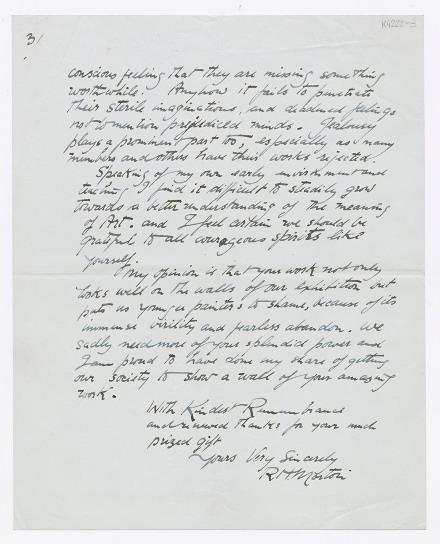 3/
N4222-3
conscious feeling that they are missing something
worthwhile. Anyhow it fails to penetrate
their sterile imaginations, and deadened feelings
not to mention prejudiced minds. Jealousy
plays a prominent part too, especially as many
members and others have their works rejected.
Speaking of my own early environment and
teaching I find it difficult to steadily grow
towards a better understanding of the meaning
of Art. and I feel certain we should be
grateful to all courageous spirits like
yourself.
My opinion is that your work not only
looks well on the walls of our exhibition but
puts us younger painters to shame, because of its
immense virility and fearless abandon. We
sadly need more of your splendid power and
I am proud to have done my share of getting
our society to show a wall of your amazing
work.
With Kindest Remembrance
and renewed thanks for your much
prized gift
Yours Very Sincerely